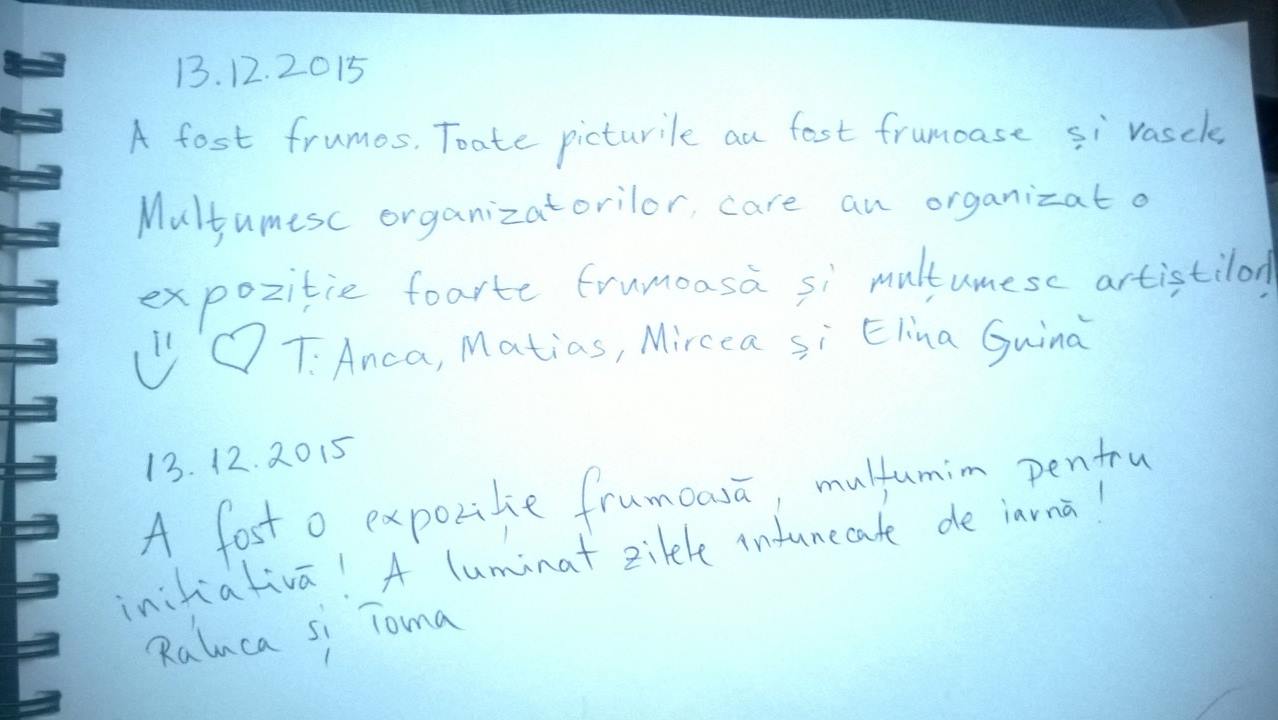 13.12.2015
A fost frumos. Toate picturile au fost frumoase și vasele.
Mulțumesc organizatorilor, care au organizat o
expoziție foarte frumoasă și mulțumesc artiștilor!
T: Anca, Matias, Mircea și Elina Guină
13.12.2015
A fost o expoziție frumoasă, mulțumim pentru
inițiativă! A luminat zilele intunecate de iarnă!
Raluca și Toma